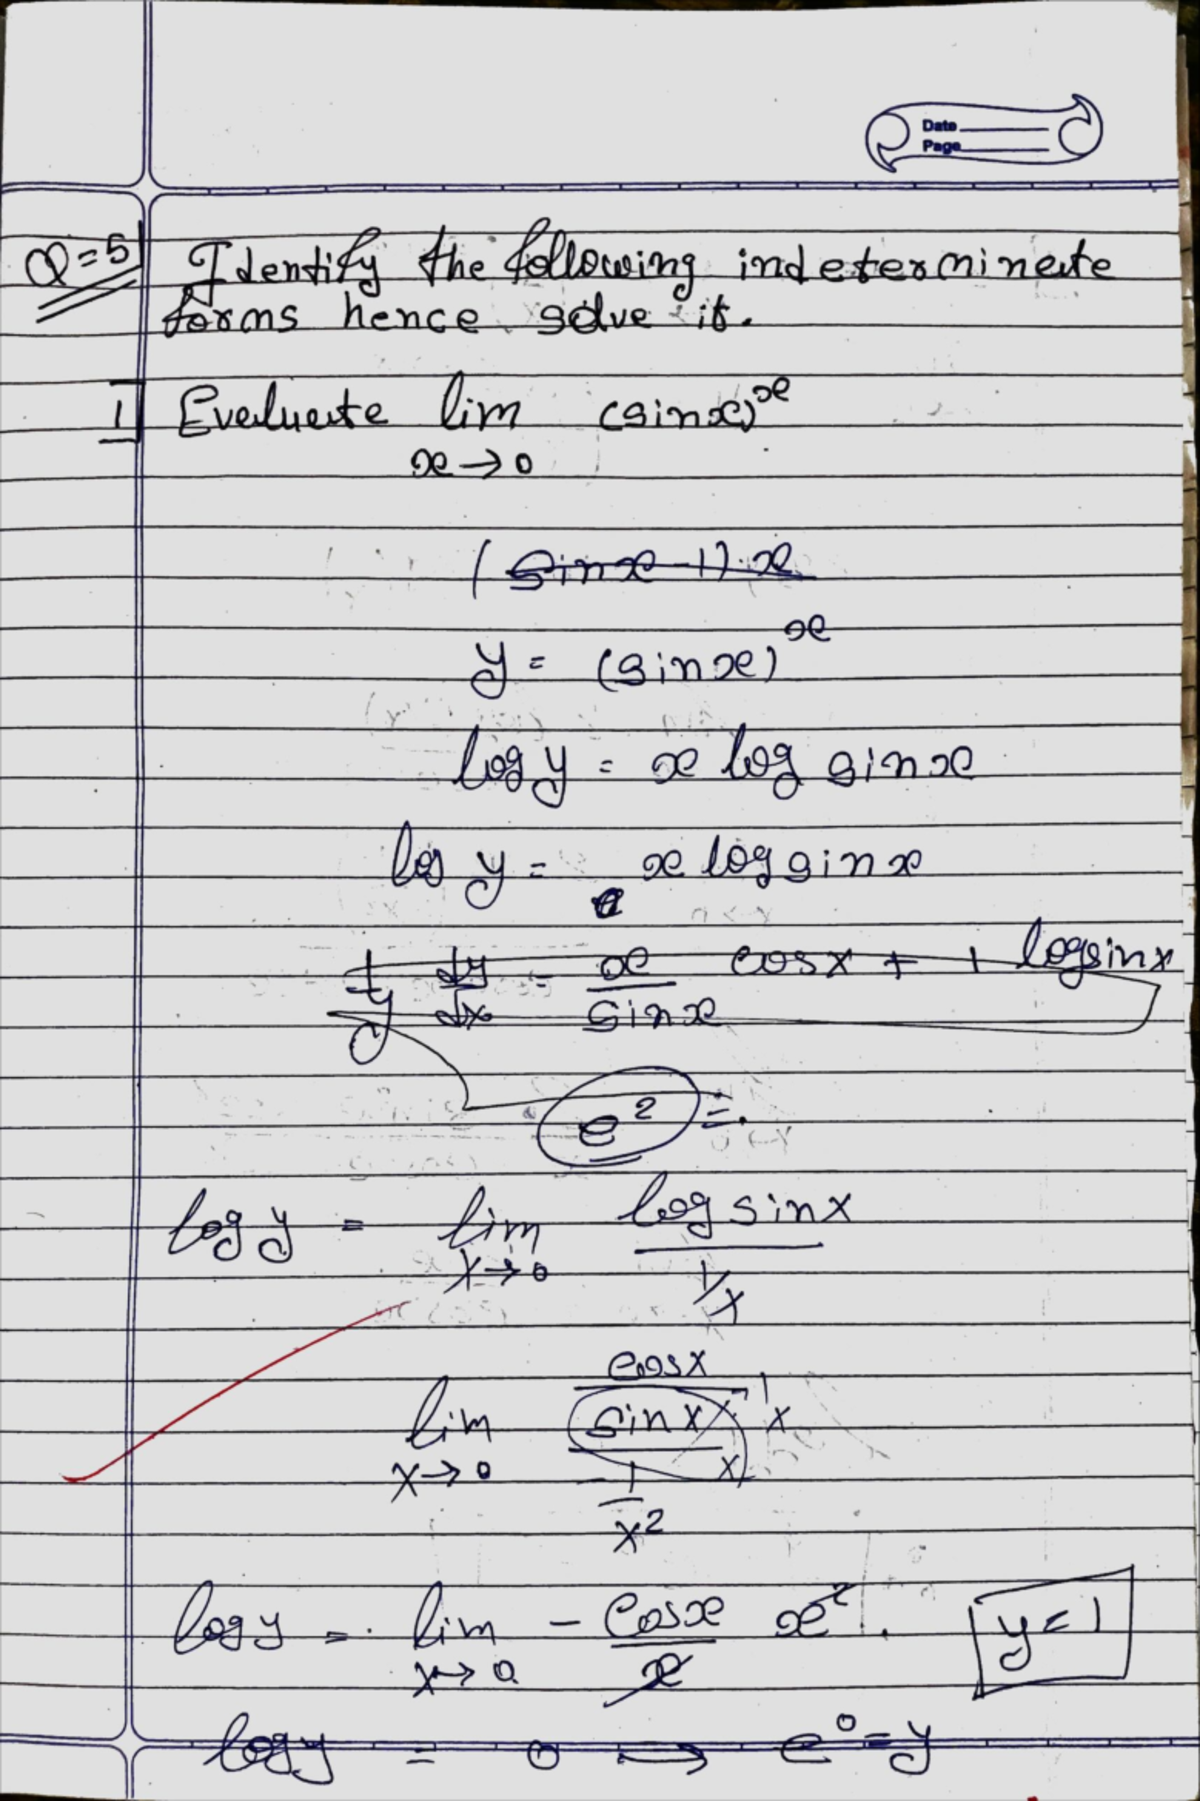 Date
Page
Q=5 Identify the following indeterminate
forms hence solve it.
1 Evaluate lim (sinx)^x
x→0
(sinx-1).x
y = (sinx)^x
log y = x log sinx
log y = x log sinx
1/y dy/dx = x/sinx cosx + 1 logsinx
e² =.
log y = lim log sinx
x→0 1/x
cosx
lim sinx/x 1/x
x→0 -1/x²
log y = lim - cosx/x x². y=1
x→0
log y = 0 → e⁰=y